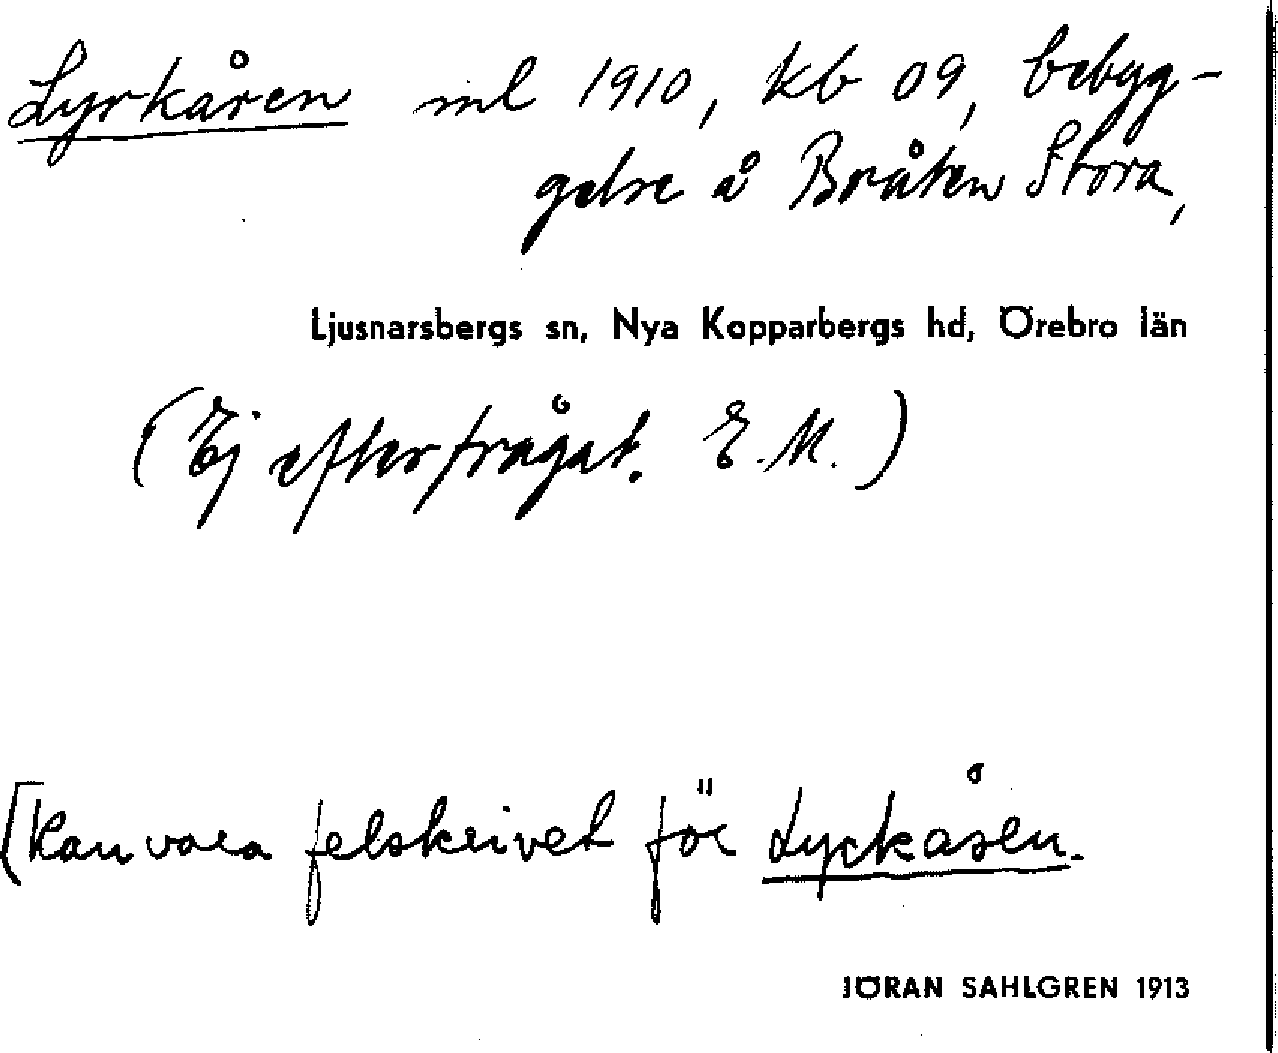 Lyrkåren ml 1910, kb 09, bebyg-
gelse å Bråten Stora,
Ljusnarsbergs sn, Nya Kopparbergs hd, Örebro län
(Ej efterfrågat. E.M.)
[Kan vara felskrivet för Lyckåsen.
JÖRAN SAHLGREN 1913